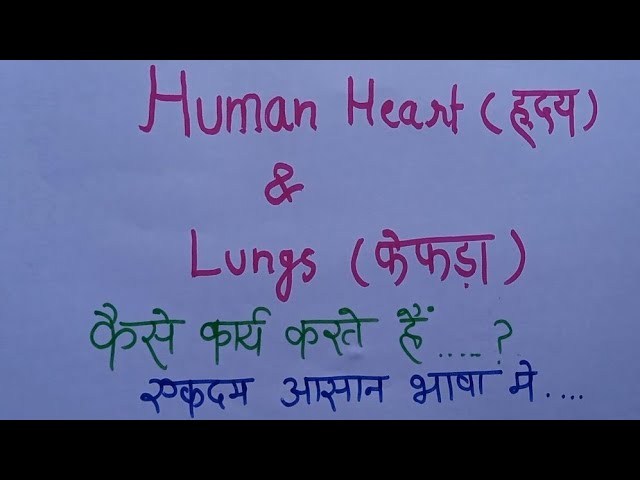 Human Heart (हृदय)
&
Lungs (फेफड़ा)
कैसे कार्य करते हैं.....?
एकदम आसान भाषा मे....